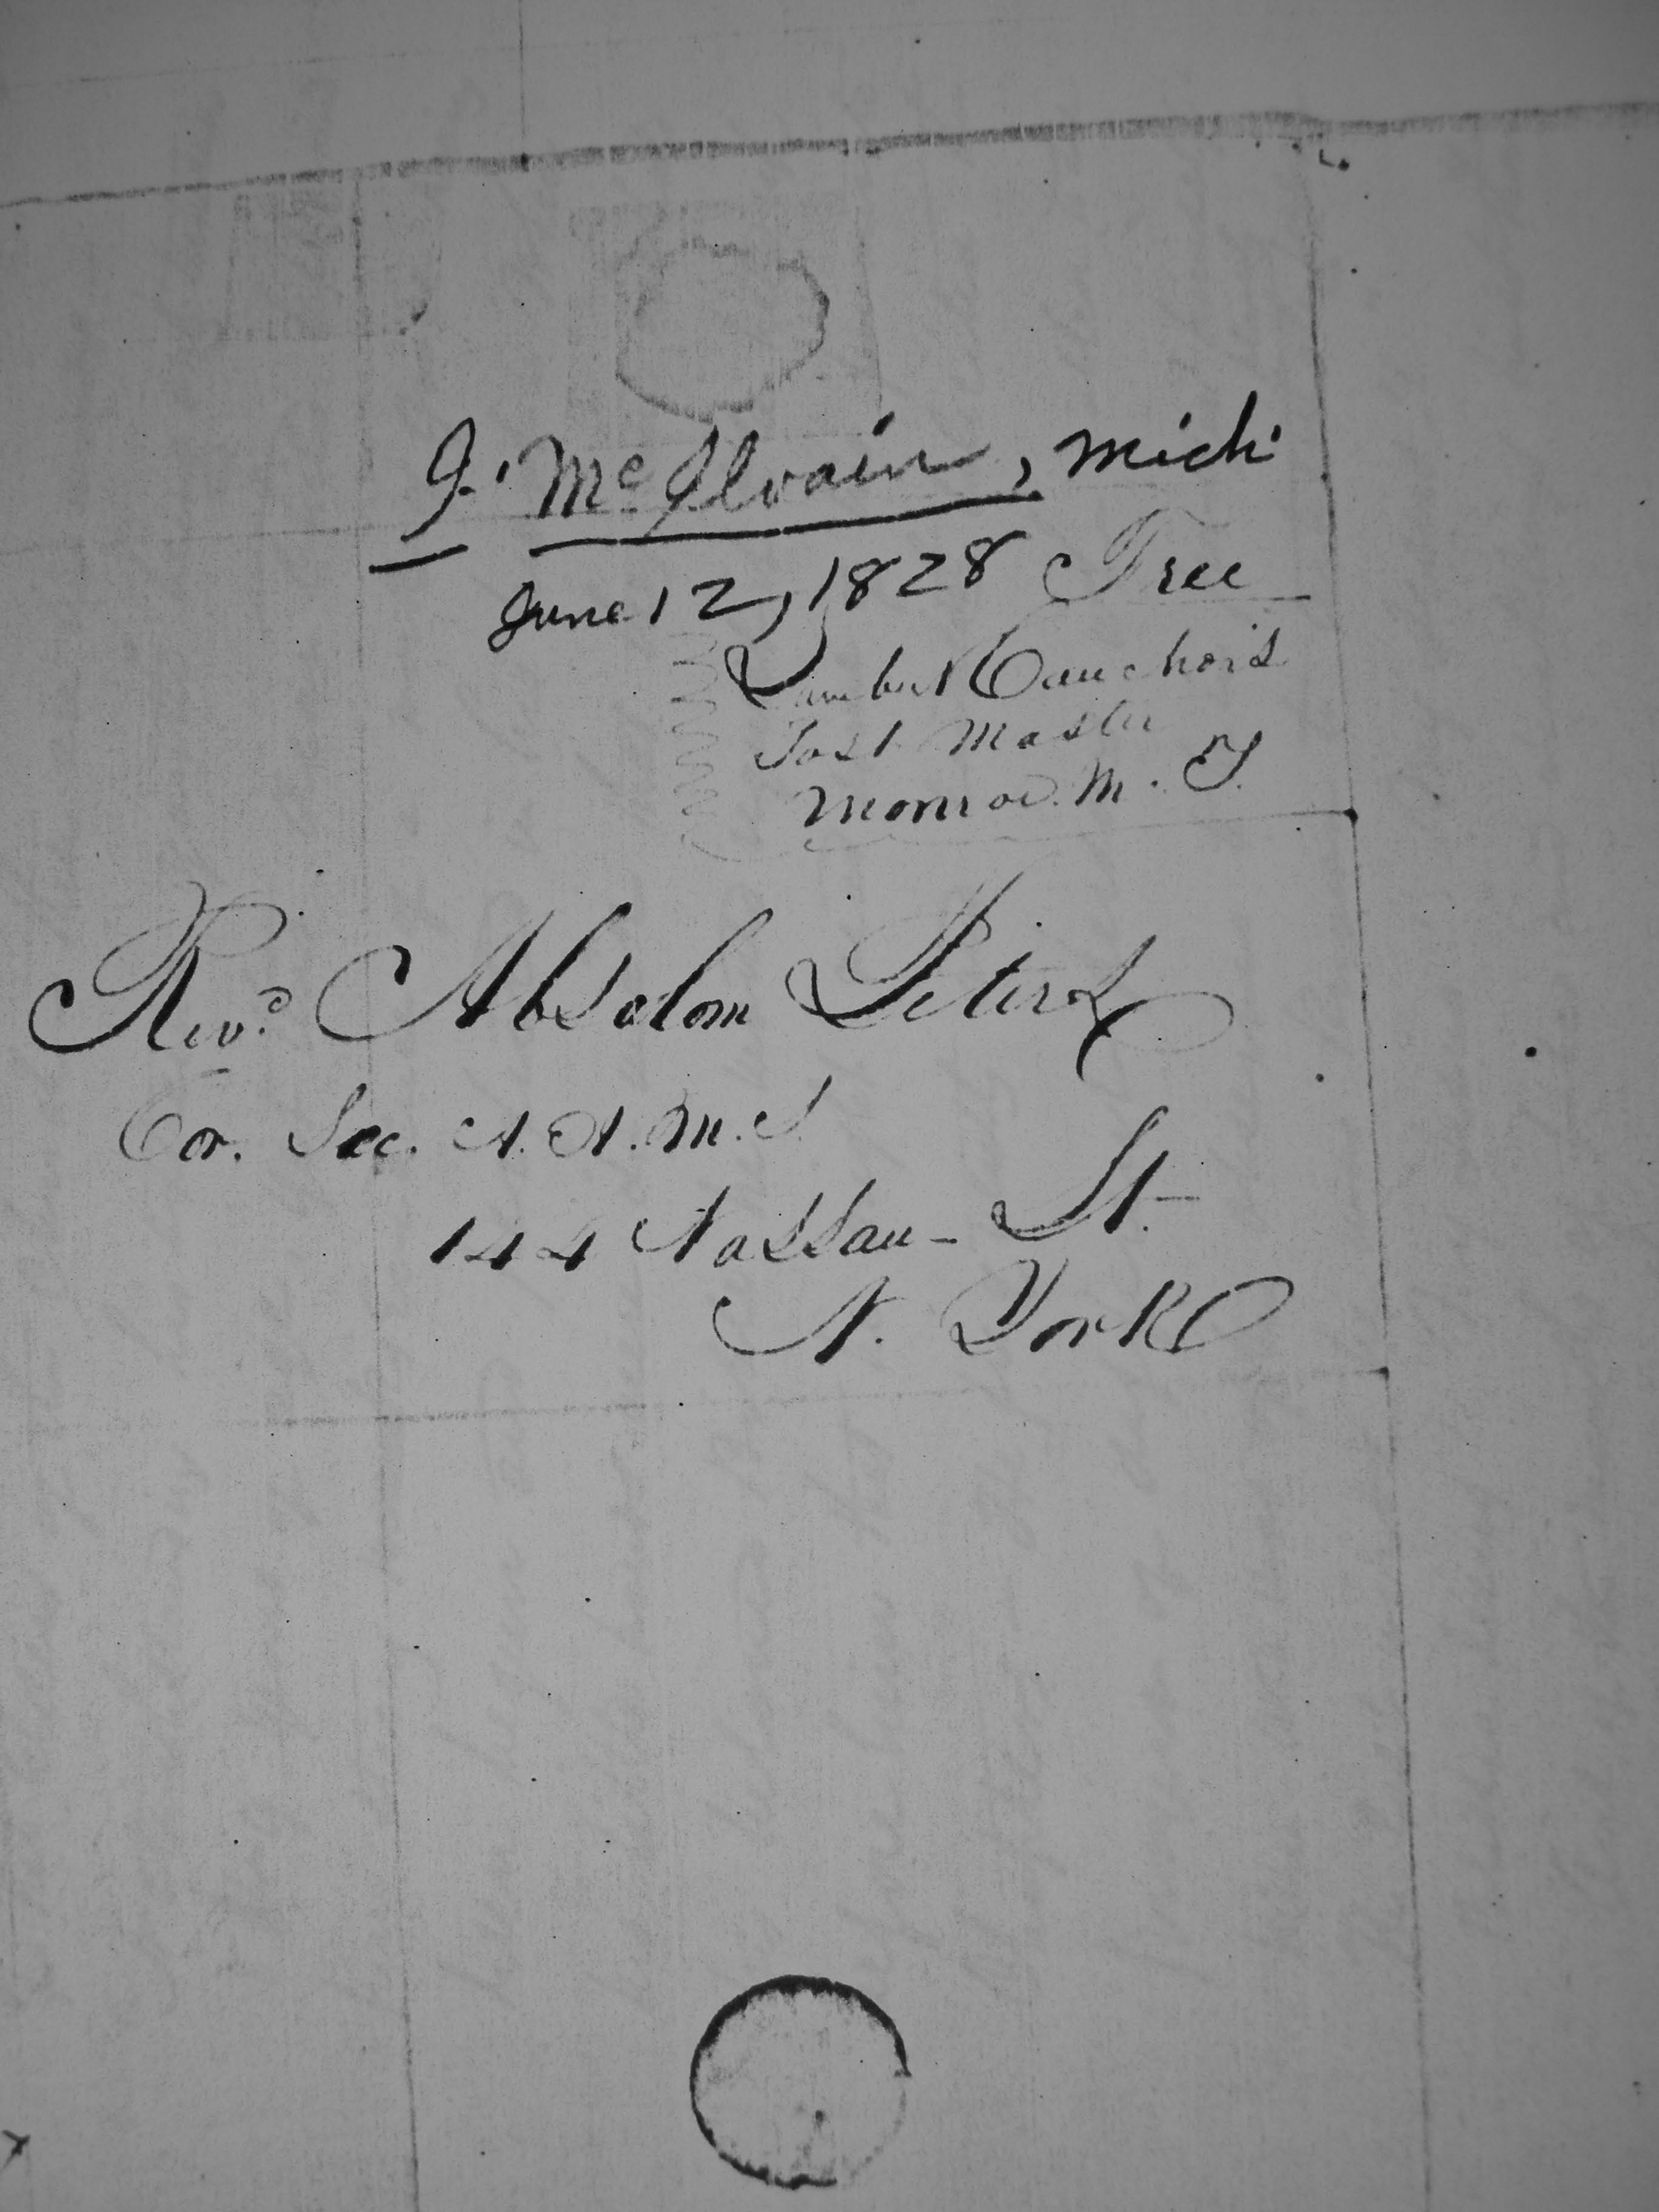 J. McIlvain, Mich.
June 12, 1828 Free
Lambert Cauchois
Post Master
Monroe. M. T.
Revd. Absalom Peters
Cor. Sec. A. H. M. S.
144 Nassau - St.
N. York